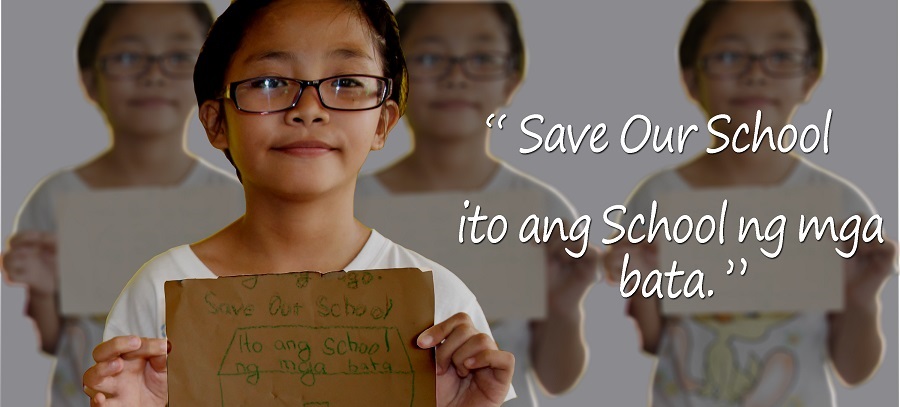 Save Our School
Ito ang School
ng mga bata
“ Save Our School
ito ang School ng mga
bata.”